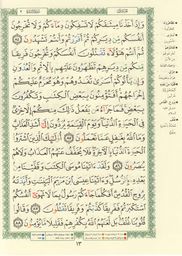 وَإِذۡ أَخَذۡنَا مِيثَٰقَكُمۡ لَا تَسۡفِكُونَ دِمَآءَكُمۡ وَلَا تُخۡرِجُونَ
أَنفُسَكُم مِّن دِيَٰرِكُمۡ ثُمَّ أَقۡرَرۡتُمۡ وَأَنتُمۡ تَشۡهَدُونَ ٨٤
ثُمَّ أَنتُمۡ هَٰٓؤُلَآءِ تَقۡتُلُونَ أَنفُسَكُمۡ وَتُخۡرِجُونَ فَرِيقٗا
مِّنكُم مِّن دِيَٰرِهِمۡ تَظَٰهَرُونَ عَلَيۡهِم بِٱلۡإِثۡمِ وَٱلۡعُدۡوَٰنِ
وَإِن يَأۡتُوكُمۡ أُسَٰرَىٰ تُفَٰدُوهُمۡ وَهُوَ مُحَرَّمٌ عَلَيۡكُمۡ
إِخۡرَاجُهُمۡۚ أَفَتُؤۡمِنُونَ بِبَعۡضِ ٱلۡكِتَٰبِ وَتَكۡفُرُونَ
بِبَعۡضٖۚ فَمَا جَزَآءُ مَن يَفۡعَلُ ذَٰلِكَ مِنكُمۡ إِلَّا خِزۡيٞ
فِي ٱلۡحَيَوٰةِ ٱلدُّنۡيَاۖ وَيَوۡمَ ٱلۡقِيَٰمَةِ يُرَدُّونَ إِلَىٰٓ أَشَدِّ ٱلۡعَذَابِۗ
وَمَا ٱللَّهُ بِغَٰفِلٍ عَمَّا تَعۡمَلُونَ ٨٥ أُوْلَٰٓئِكَ ٱلَّذِينَ ٱشۡتَرَوُاْ
ٱلۡحَيَوٰةَ ٱلدُّنۡيَا بِٱلۡأٓخِرَةِۖ فَلَا يُخَفَّفُ عَنۡهُمُ ٱلۡعَذَابُ وَلَا هُمۡ
يُنصَرُونَ ٨٦ وَلَقَدۡ ءَاتَيۡنَا مُوسَى ٱلۡكِتَٰبَ وَقَفَّيۡنَا مِنۢ
بَعۡدِهِۦ بِٱلرُّسُلِۖ وَءَاتَيۡنَا عِيسَى ٱبۡنَ مَرۡيَمَ ٱلۡبَيِّنَٰتِ وَأَيَّدۡنَٰهُ
بِرُوحِ ٱلۡقُدُسِۗ أَفَكُلَّمَا جَآءَكُمۡ رَسُولُۢ بِمَا لَا تَهۡوَىٰٓ أَنفُسُكُمُ
ٱسۡتَكۡبَرۡتُمۡ فَفَرِيقٗا كَذَّبۡتُمۡ وَفَرِيقٗا تَقۡتُلُونَ ٨٧ وَقَالُواْ
قُلُوبُنَا غُلۡفُۢۚ بَل لَّعَنَهُمُ ٱللَّهُ بِكُفۡرِهِمۡ فَقَلِيلٗا مَّا يُؤۡمِنُونَ ٨٨
١٣